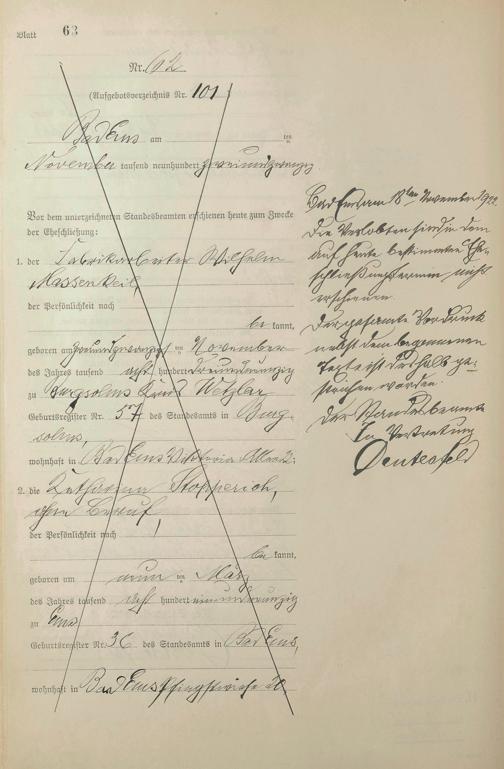 Blatt 63
Nr. 62
(Aufgebotsverzeichnis Nr. 101)
Bad Ems am ten
November tausend neunhundert zweiundzwanzig
Vor dem unterzeichneten Standesbeamten erschienen heute zum Zwecke
der Eheschließung:
1. der Fabrikarbeiter Wilhelm
Massenkeil,
der Persönlichkeit nach
be kannt,
geboren am zweiundzwanzigsten November
des Jahres tausend acht hundert
zu Burgsolms Kreis Wetzlar
Geburtsregister Nr. 57 des Standesamts in Burg-
solms,
wohnhaft in Bad Ems Viktoria Allee 2;
2. die Katharina Stopperich,
ohne Beruf,
der Persönlichkeit nach
be kannt,
geboren am neun ten März
des Jahres tausend acht hundert
zu Ems
Geburtsregister Nr. 36 des Standesamts in Bad Ems,
wohnhaft in Bad Ems Pfingstwiese 20
Bad Ems am 18ten November 1922
Die Verlobten sind in dem
auf heute bestimmten Ehe-
schließungstermin nicht
erschienen.
Der gesamte Vordruck
nebst dem begonnenen
Text ist deshalb ge-
strichen worden.
Der Standesbeamte
In Vertretung